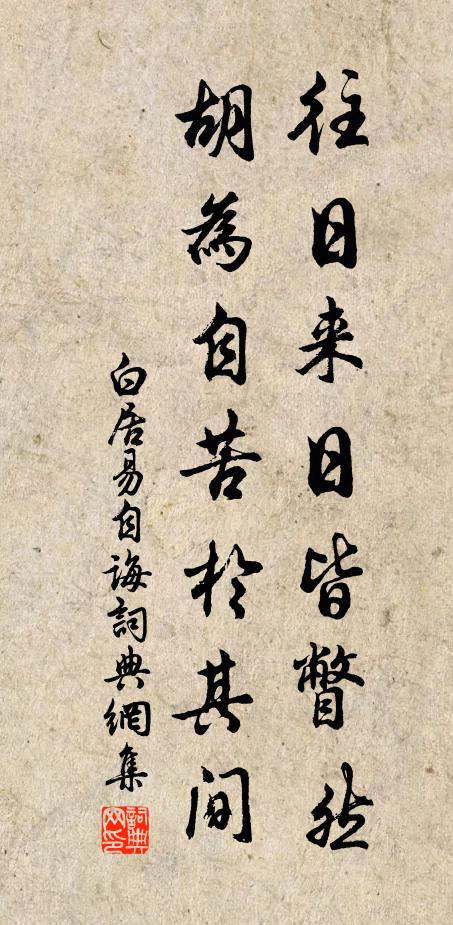 往日来日皆瞥然
胡為自苦於其間
白居易自誨詞典網集
詞典网印